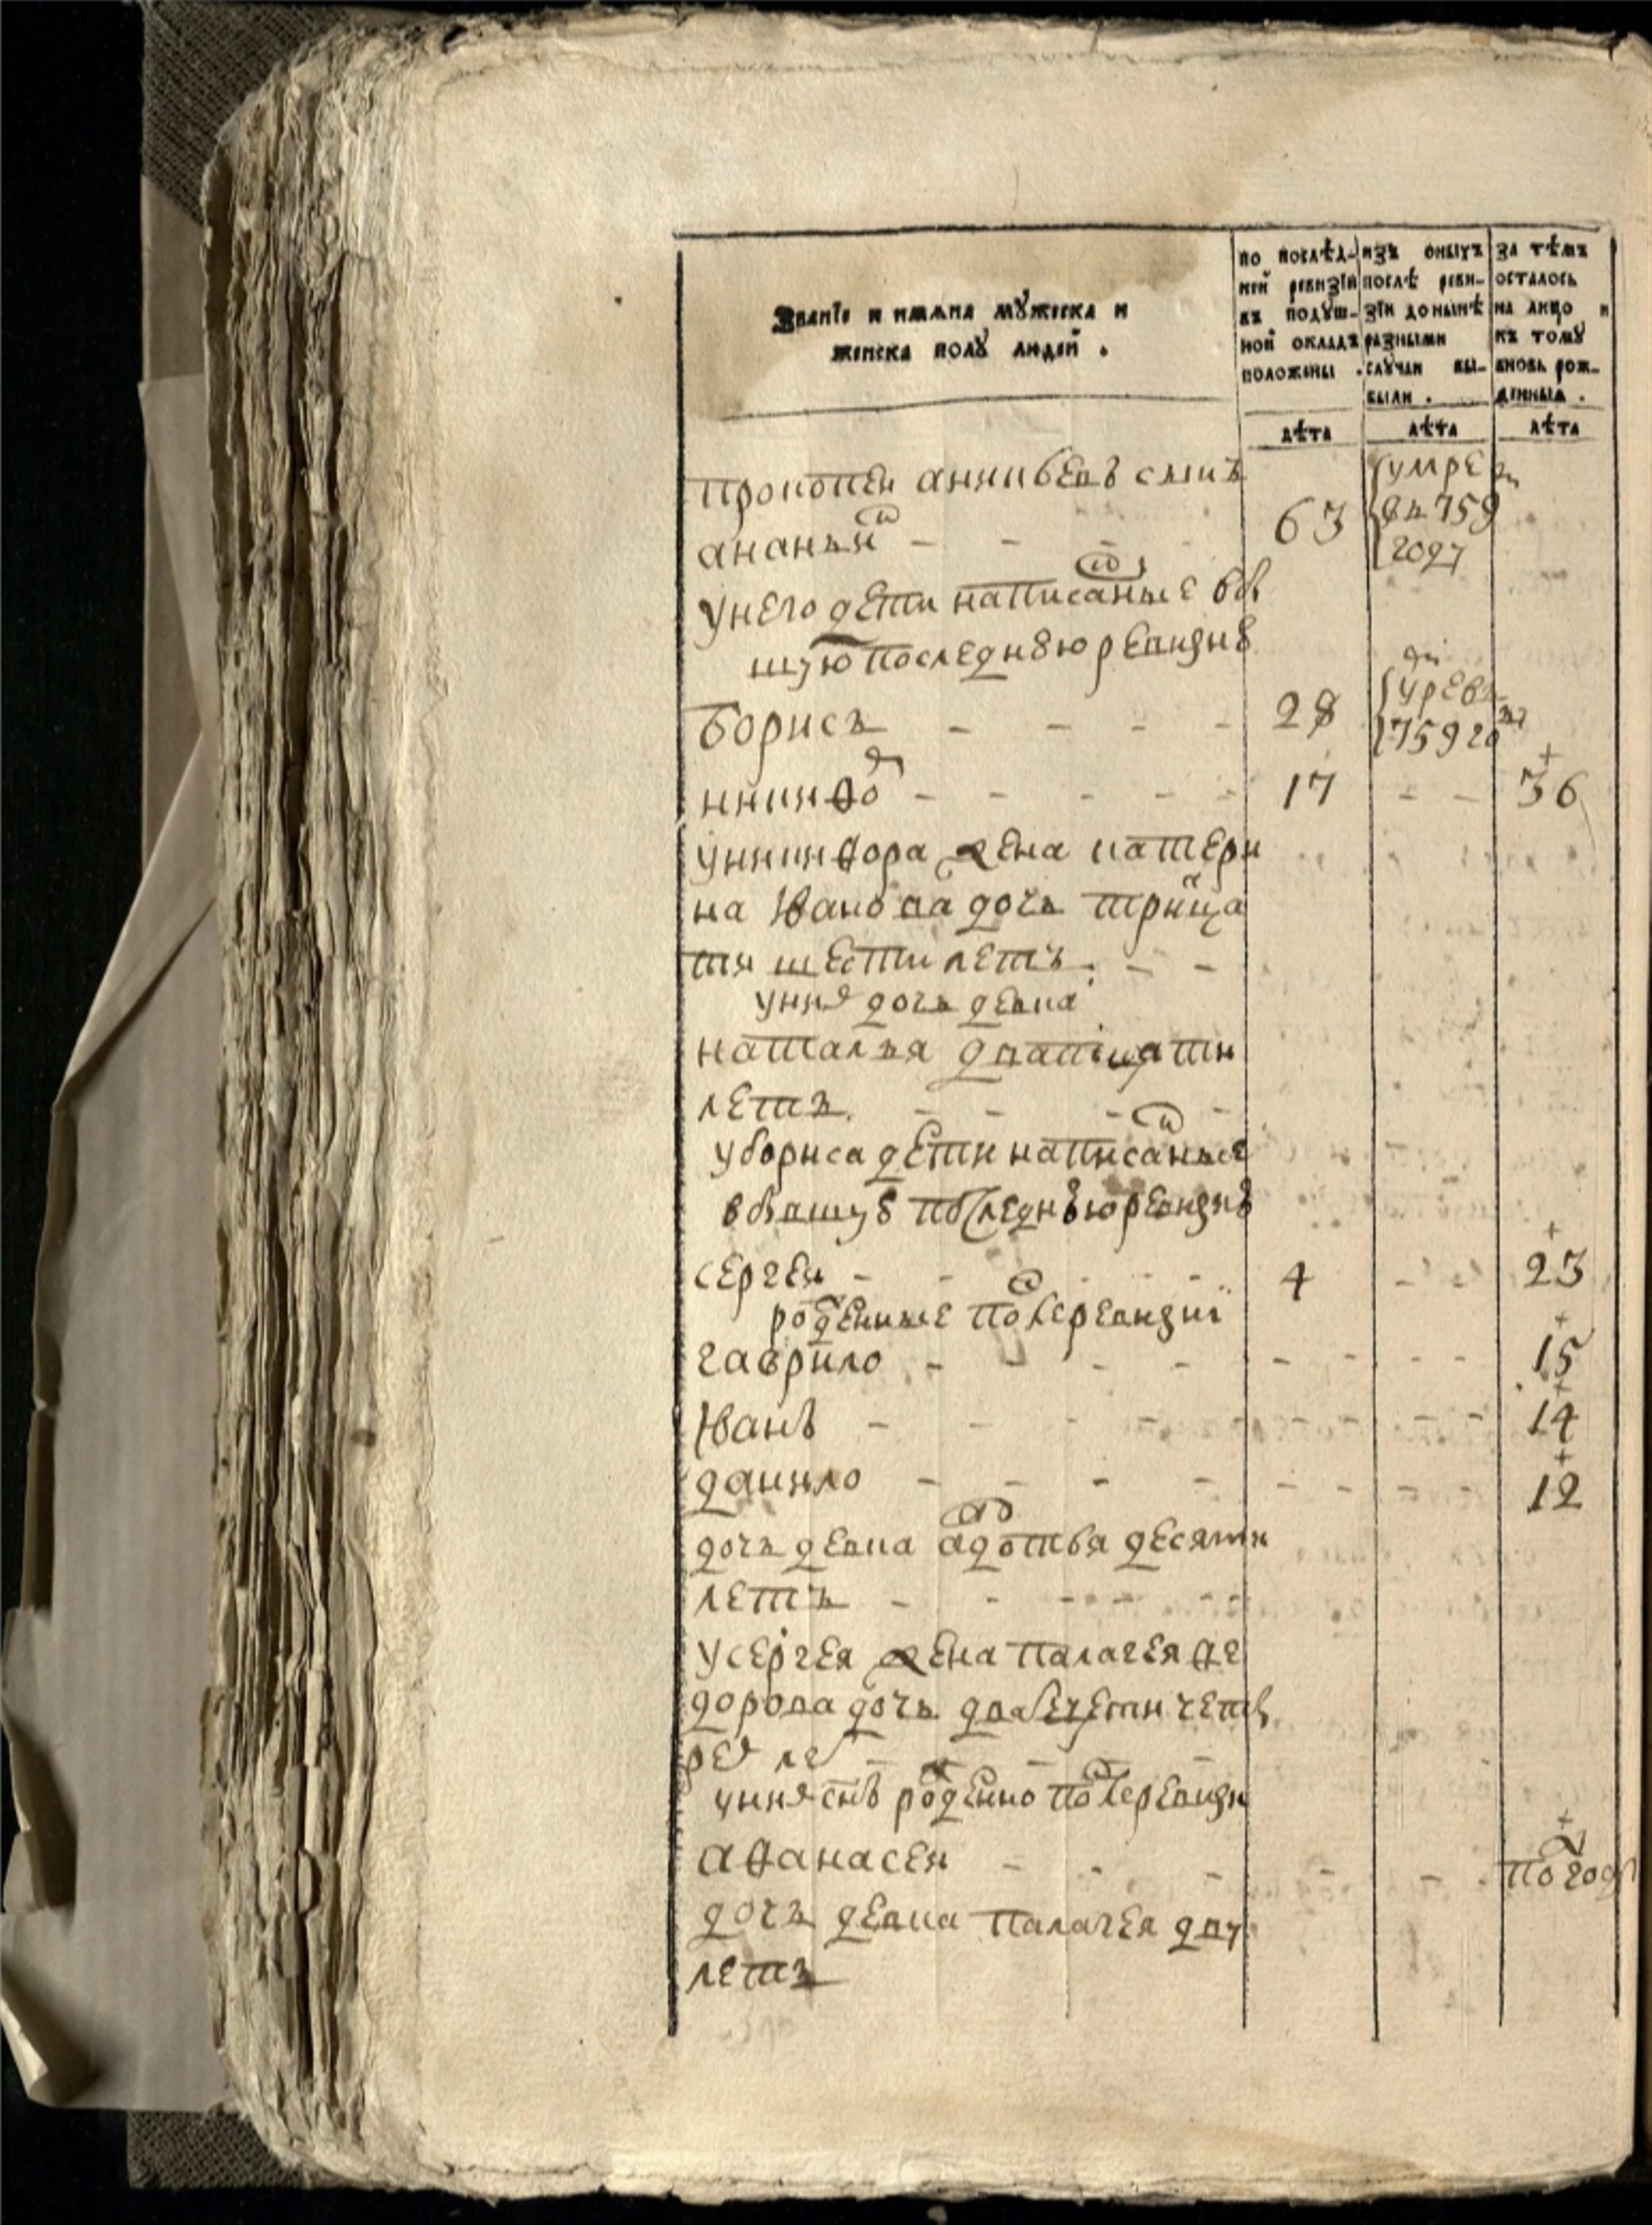 Званїе и имяна мꙋжеска и
женска полꙋ людей .
по послѣд-
ней ревизїи
въ подꙋш-
ной окладъ
положены .
изъ оныхъ
послѣ реви-
зїи донынѣ
разными
слꙋчаи вы-
были .
за тѣмъ
осталось
на лицо и
къ томꙋ
вновь рож-
денныя .
лѣта
лѣта
лѣта
прокопеи аникиевъ снъ
умре
ананьи - - - 63
759
году
унего дети написаные вб
шую последнꙋю ревизиꙋ
борисъ - - - - 28
759 го
никифо - - - - - 17 - - 36
уникифора жена катери
на Iванова дочь трицa
ти шести летъ - -
унихъ дочь девка
наталья дватцати
летъ. - - - -
убориса дети написаные
в бывшуꙋ последнꙋю ревизиꙋ
сергеи - - - - 4 - - 23
роденные после ревизиї
гаврило - - - - - - - - 15
Iванъ - - - - - - - - - 14
данило - - - - - - - - 12
дочь девка авдотья десяти
летъ - - - - -
усергея жена палагея фе
дорова дочь двацети четы
рех ле - - -
унихъ снъ роденно после ревизи
афанасеи - - - - - по году
дочь девка палагея дву
летъ